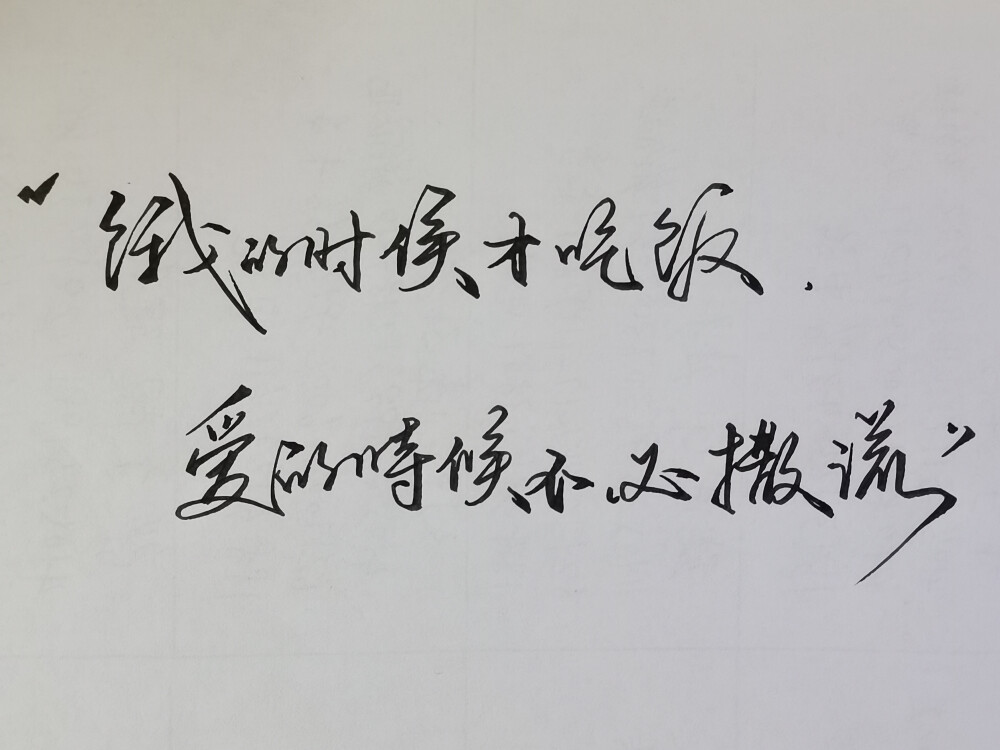 “饿的时候才吃饭.
爱的時候不必撒谎”